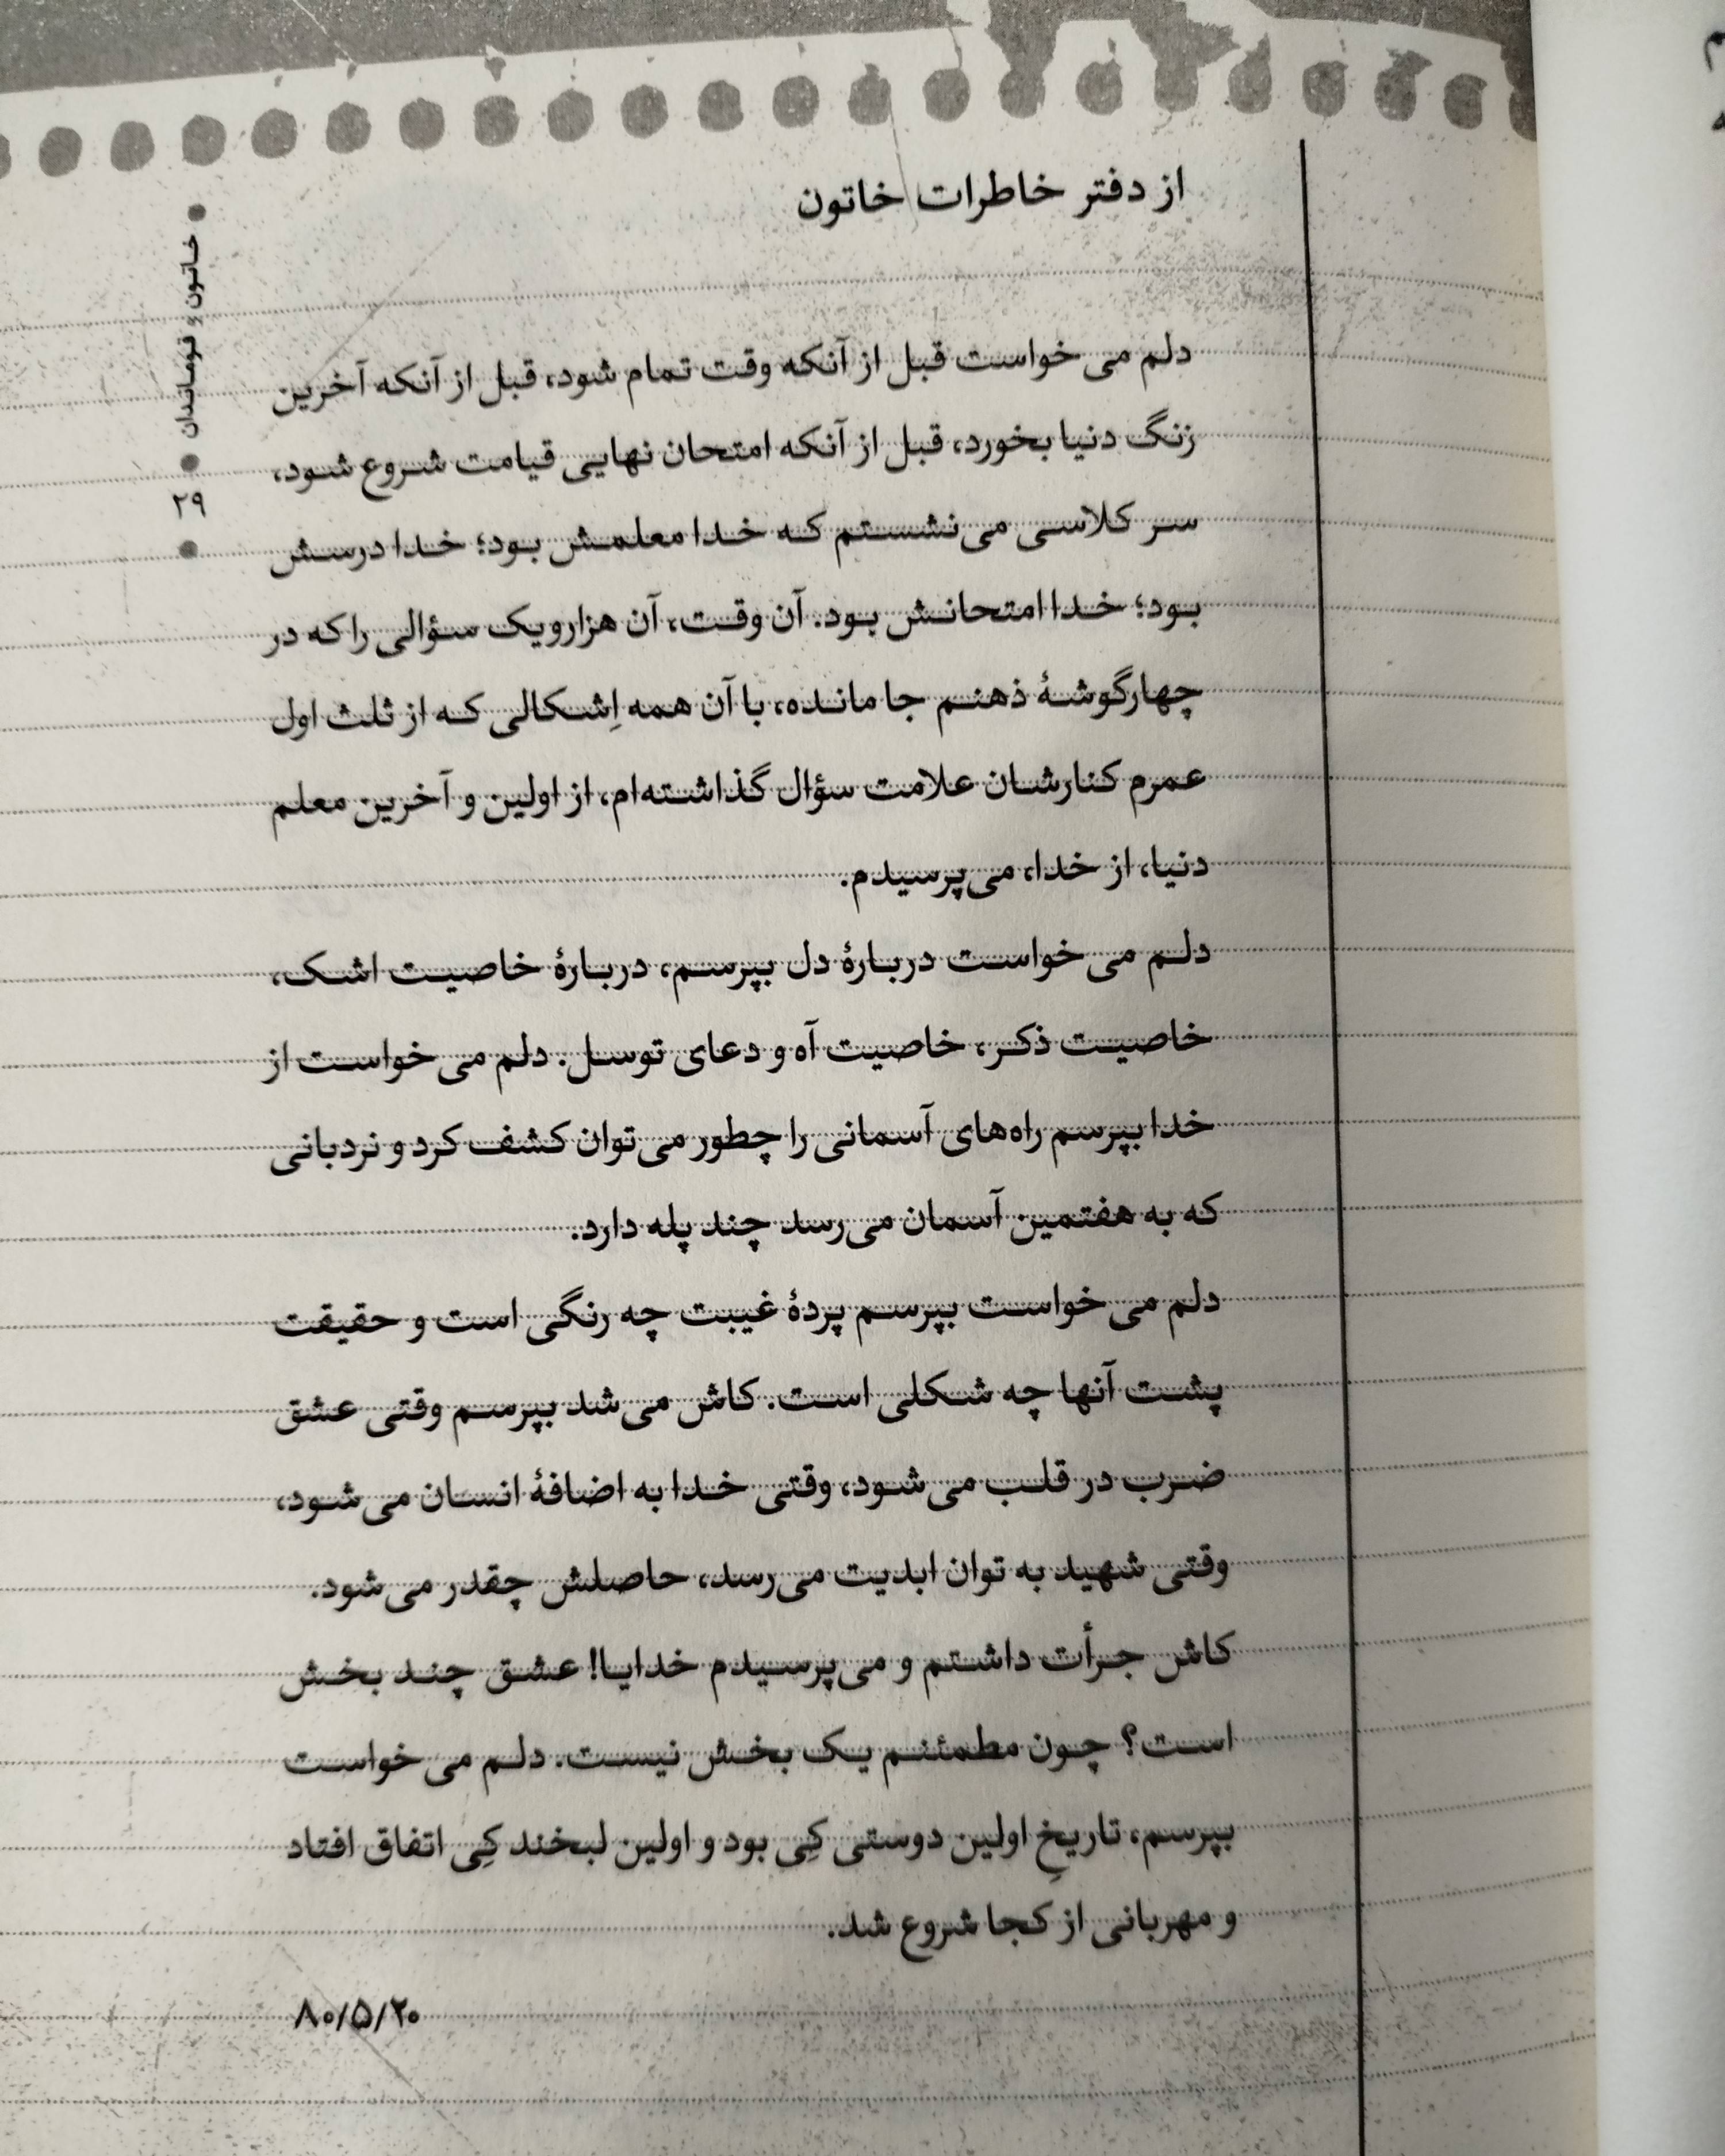 از دفتر خاطرات خاتون
دلم می خواست قبل از آنکه وقت تمام شود، قبل از آنکه آخرین
زنگ دنیا بخورد، قبل از آنکه امتحان نهایی قیامت شروع شود،
سر کلاسی می‌نشستم که خدا معلمش بود؛ خدا درسش
بود؛ خدا امتحانش بود. آن وقت، آن هزارویک سؤالی را که در
چهارگوشهٔ ذهنم جا مانده، با آن همه اِشکالی که از ثلث اول
عمرم کنارشان علامت سؤال گذاشته‌ام، از اولین و آخرین معلم
دنیا، از خدا، می‌پرسیدم.
دلم می‌خواست دربارهٔ دل بپرسم، دربارهٔ خاصیت اشک،
خاصیت ذکر، خاصیت آه و دعای توسل. دلم می خواست از
خدا بپرسم راه‌های آسمانی را چطور می‌توان کشف کرد و نردبانی
که به هفتمین آسمان می‌رسد چند پله دارد.
دلم می خواست بپرسم پردهٔ غیبت چه رنگی است و حقیقت
پشت آنها چه شکلی است. کاش می‌شد بپرسم وقتی عشق
ضرب در قلب می‌شود، وقتی خدا به اضافهٔ انسان می‌شود،
وقتی شهید به توان ابدیت می‌رسد، حاصلش چقدر می‌شود.
کاش جرأت داشتم و می‌پرسیدم خدایا! عشق چند بخش
است؟ چون مطمئنم یک بخش نیست. دلم می خواست
بپرسم، تاریخِ اولین دوستی کِی بود و اولین لبخند کِی اتفاق افتاد
و مهربانی از کجا شروع شد.
۸۰/۵/۲۰
خاتون و قوماندان
۲۹